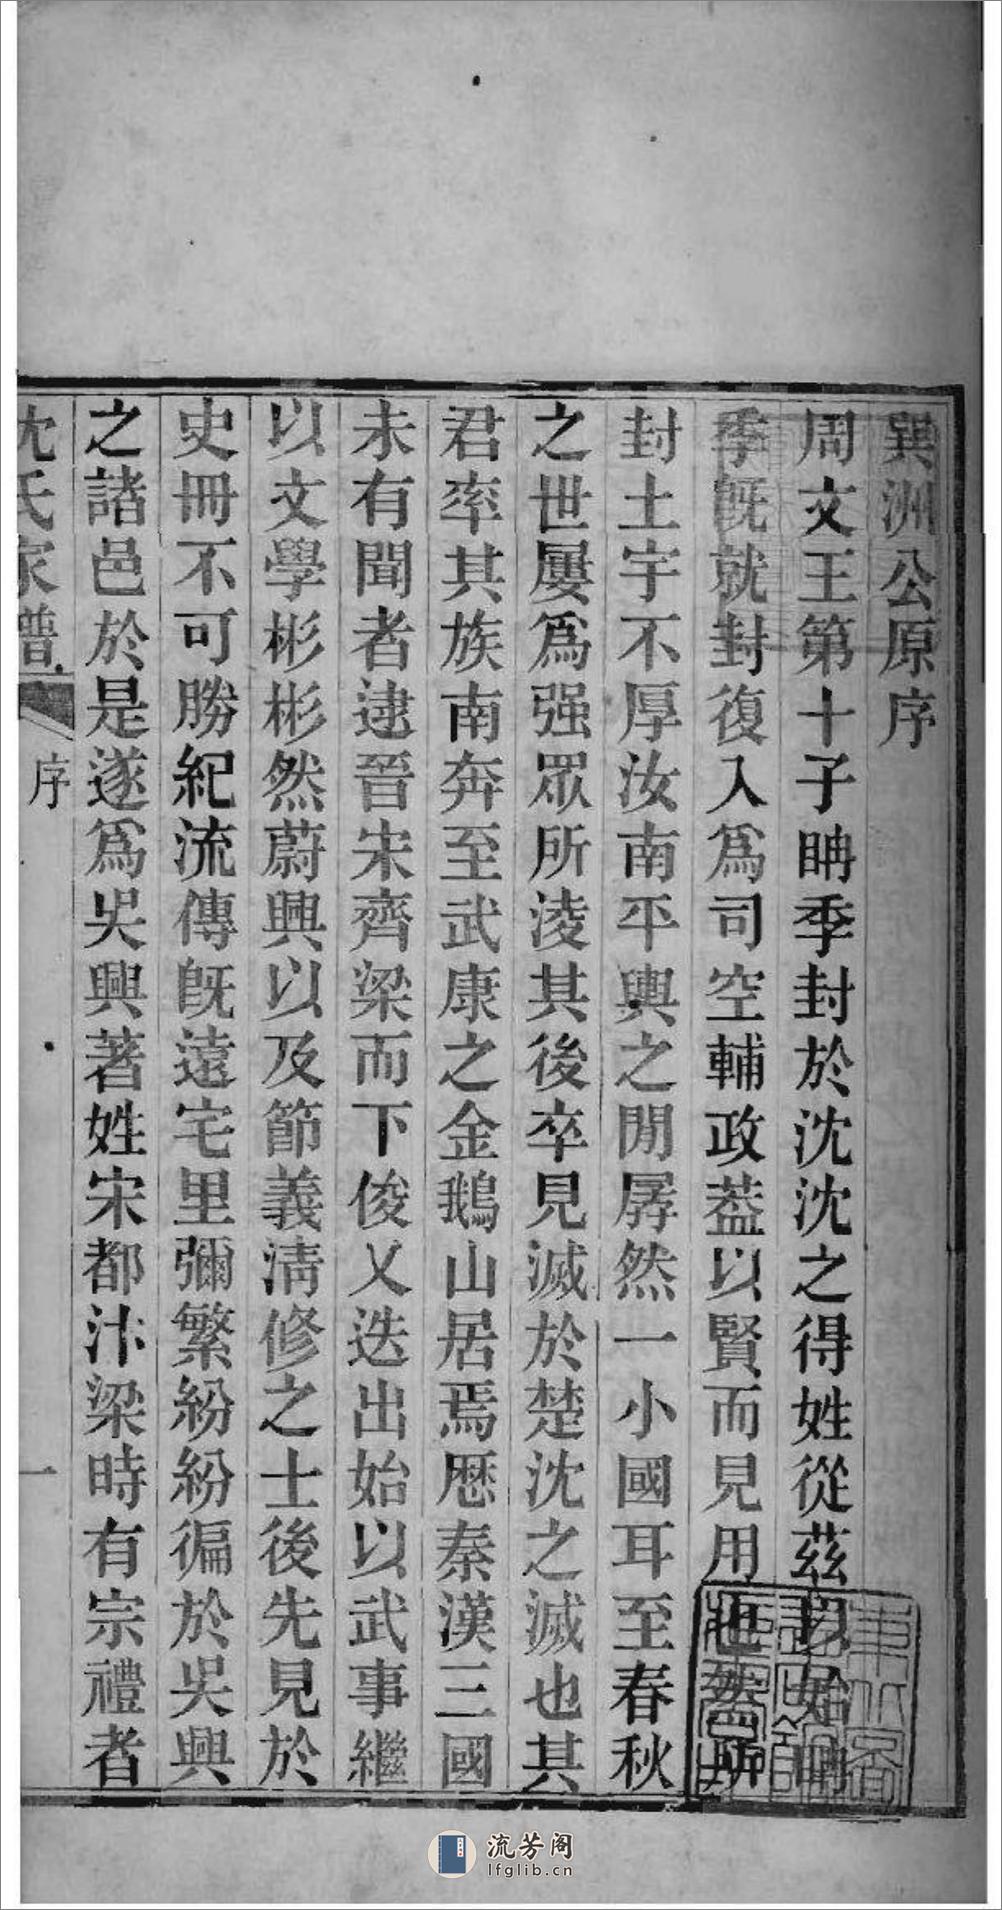 巽洲公原序
周文王第十子聃季封於沈沈之得姓從茲以始聃
季旣就封復入爲司空輔政葢以賢而見用也然所
封土宇不厚汝南平輿之閒孱然一小國耳至春秋
之世屢爲强眾所淩其後卒見滅於楚沈之滅也其
君率其族南奔至武康之金鵝山居焉歷秦漢三國
未有聞者逮晉宋齊梁而下俊乂迭出始以武事繼
以文學彬彬然蔚興以及節義淸修之士後先見於
史冊不可勝紀流傳旣遠宅里彌繁紛紛徧於吳興
之諸邑於是遂爲吳興著姓宋都汴梁時有宗禮者
沈氏家譜
序
一
流芳阁
lfglib.cn